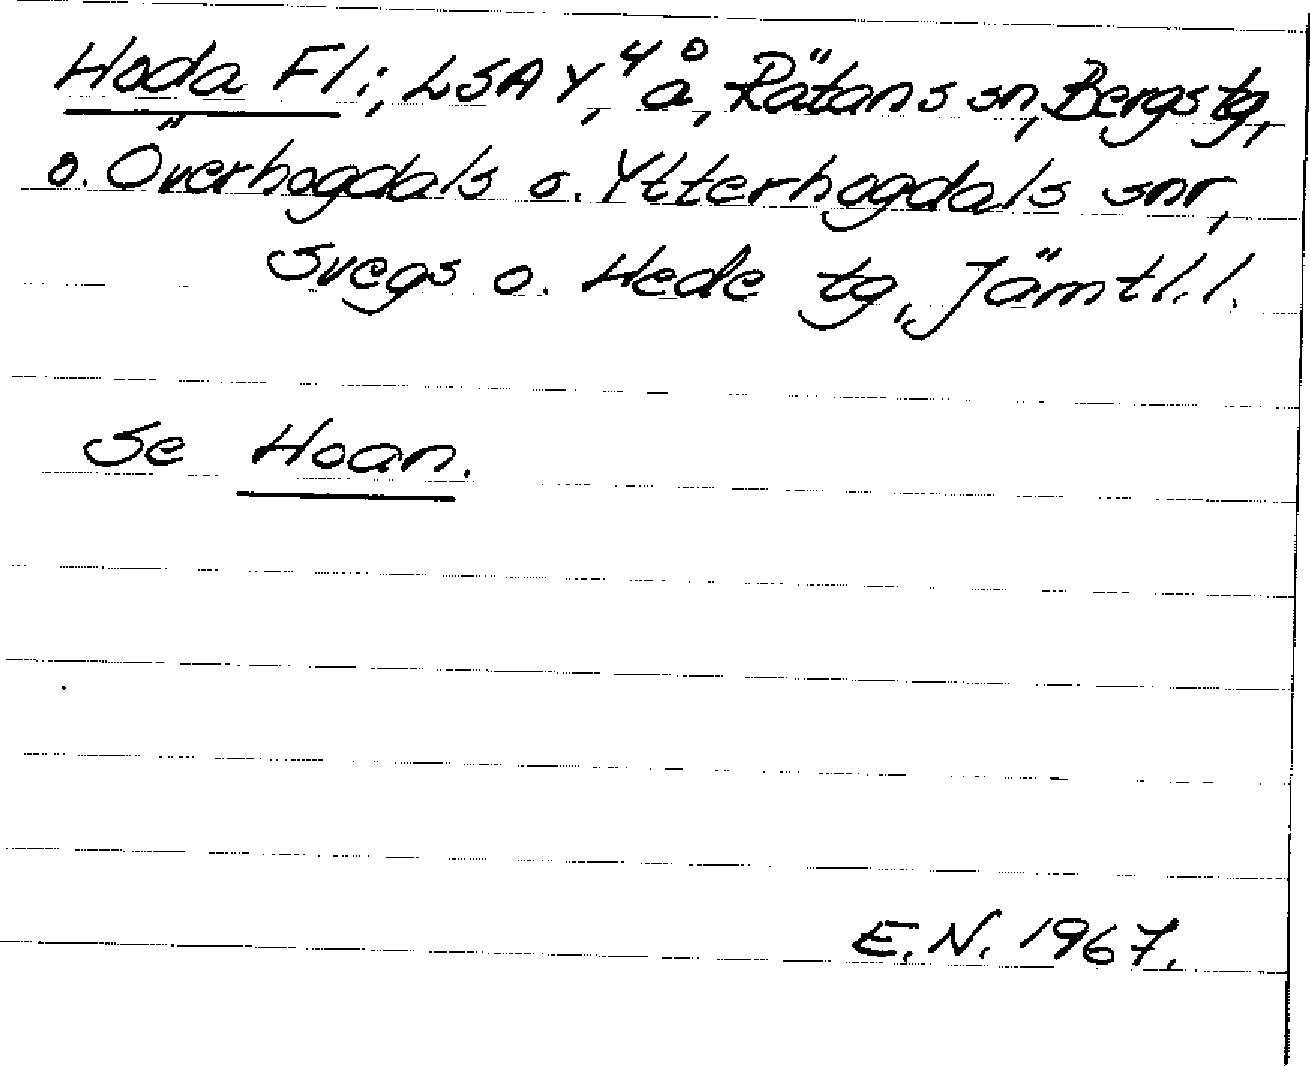 Hoda Fl.; LSA Y, 4 å, Rätans sn, Bergs tg,
o. Överhogdals o. Ytterhogdals snr,
Svegs o. Hede tg, Jämtl.l.
Se Hoan.
E.N. 1967.